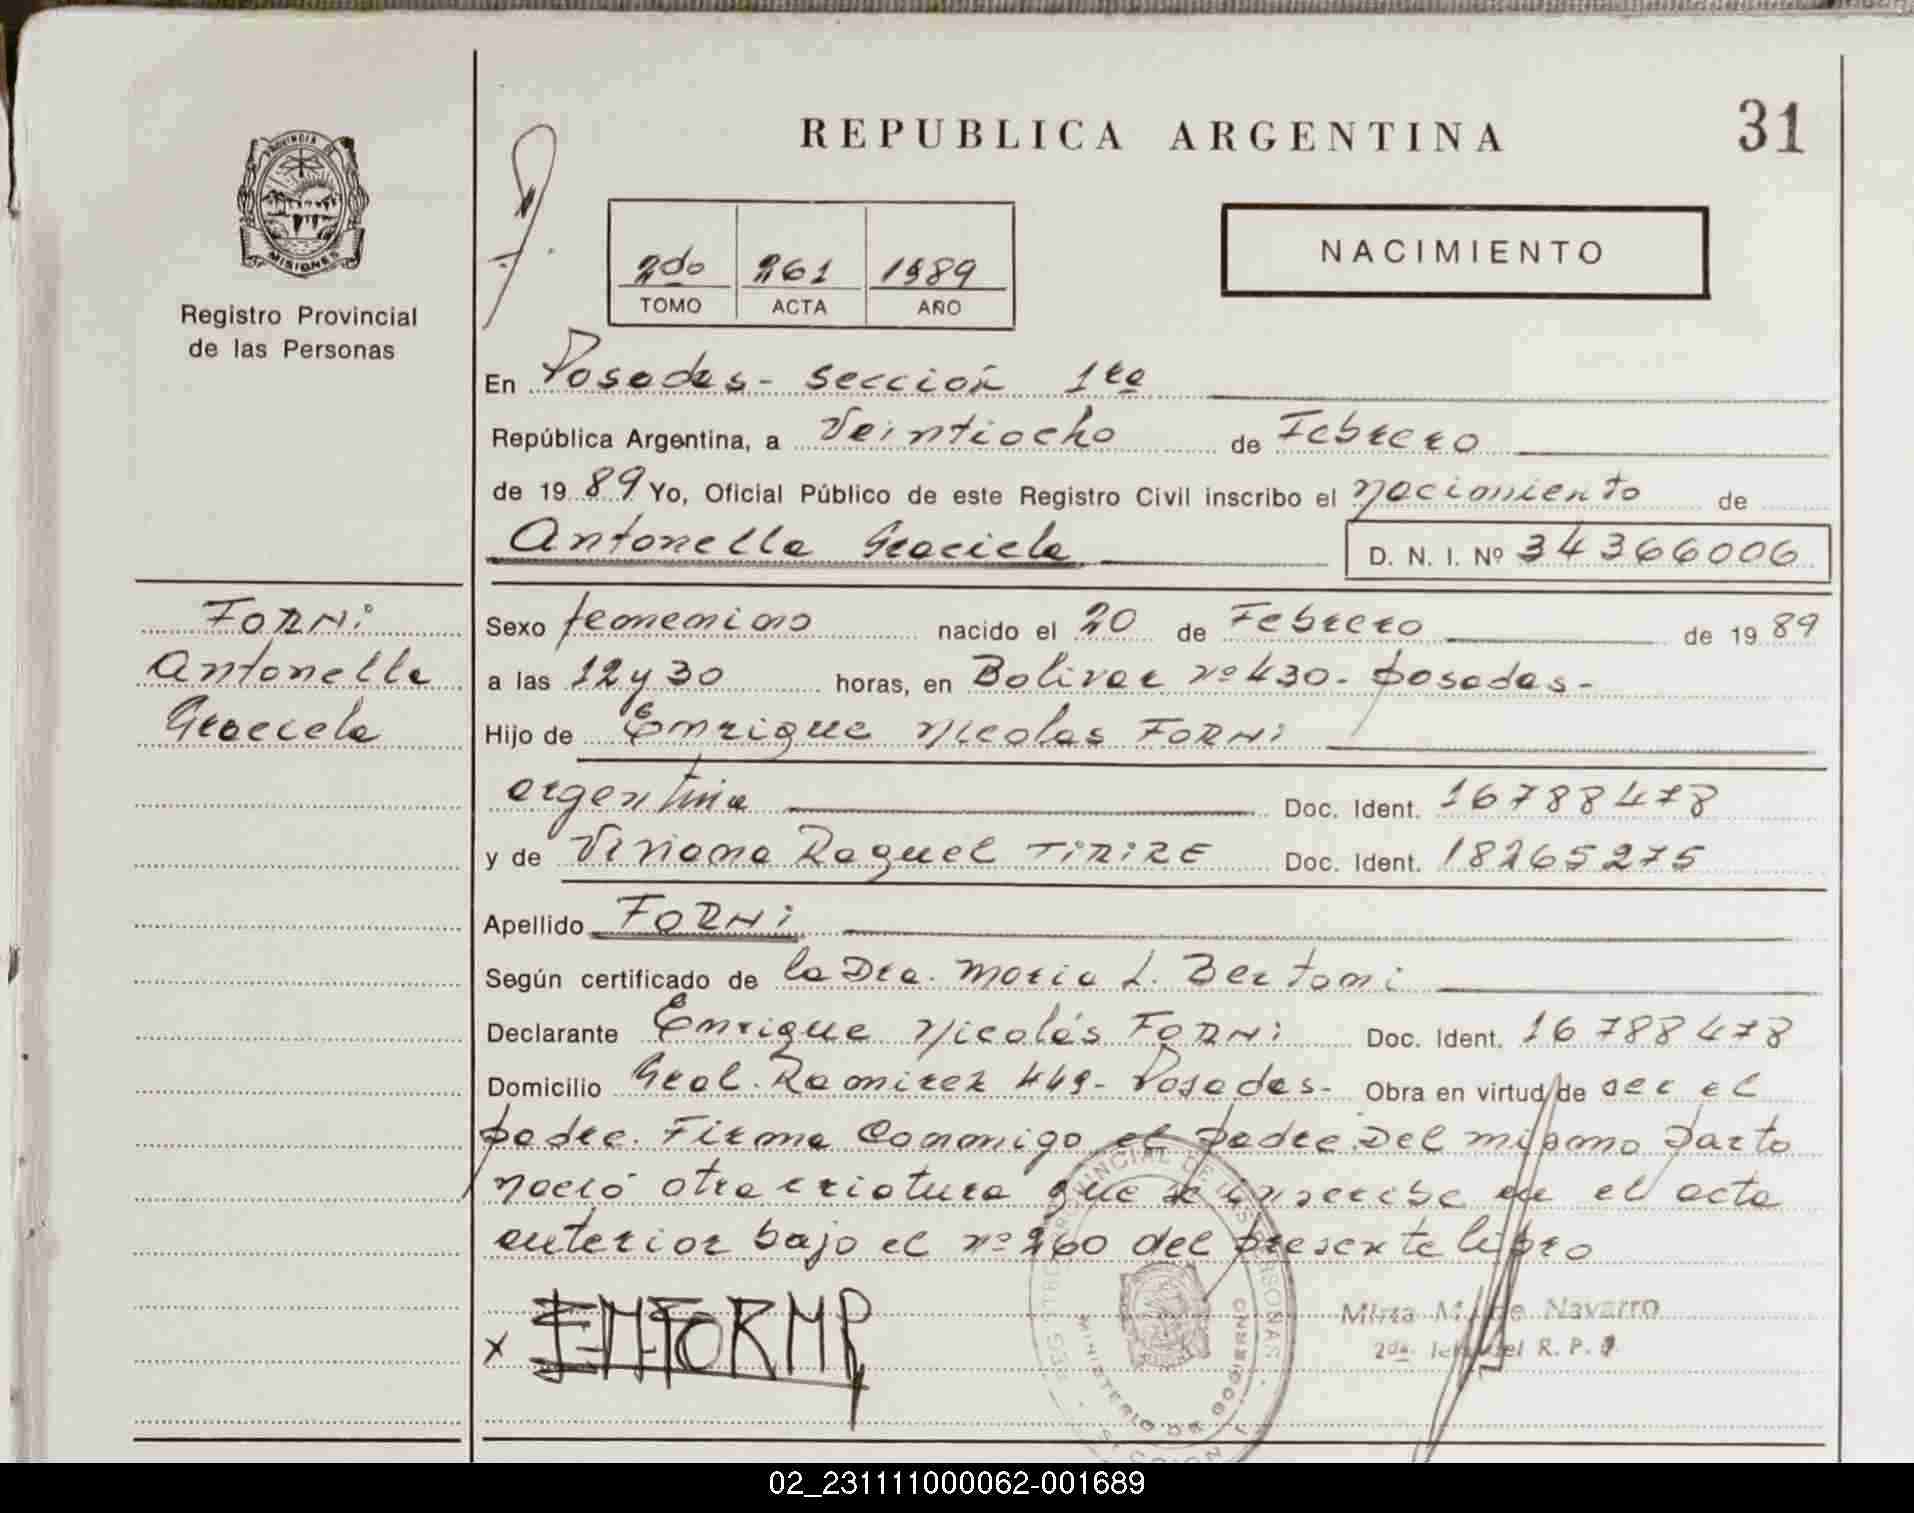 REPUBLICA ARGENTINA
31
PROVINCIA DE
MISIONES
Registro Provincial
de las Personas
2do 261 1989
TOMO ACTA AÑO
NACIMIENTO
En Posadas - sección 1ra
República Argentina, a Veintiocho de Febrero
de 1989 Yo, Oficial Público de este Registro Civil inscribo el nacimiento de
Antonella Graciela D. N. I. Nº 34366006
FORNI
Antonella
Graciela
Sexo femenino nacido el 20 de Febrero de 1989
a las 12 y 30 horas, en Bolivar nº 430 - posadas -
Hijo de Enrique Nicolas FORNI
argentina Doc. Ident. 16788478
y de Viviana Raquel TIRIRE Doc. Ident. 18265275
Apellido FORNI
Según certificado de la Dra. Maria L. Bertoni
Declarante Enrique Nicolás FORNI Doc. Ident. 16788478
Domicilio Gral. Ramirez 449 - Posadas - Obra en virtud de ser el
padre. Firma Conmigo el padre. Del mismo parto
nació otra criatura que se inscribe en el acta
anterior bajo el nº 260 del presente libro
x
Mirta M. de Navarro
2da. Jefa del R. P.
MINISTERIO DE GOBIERNO
02_231111000062-001689